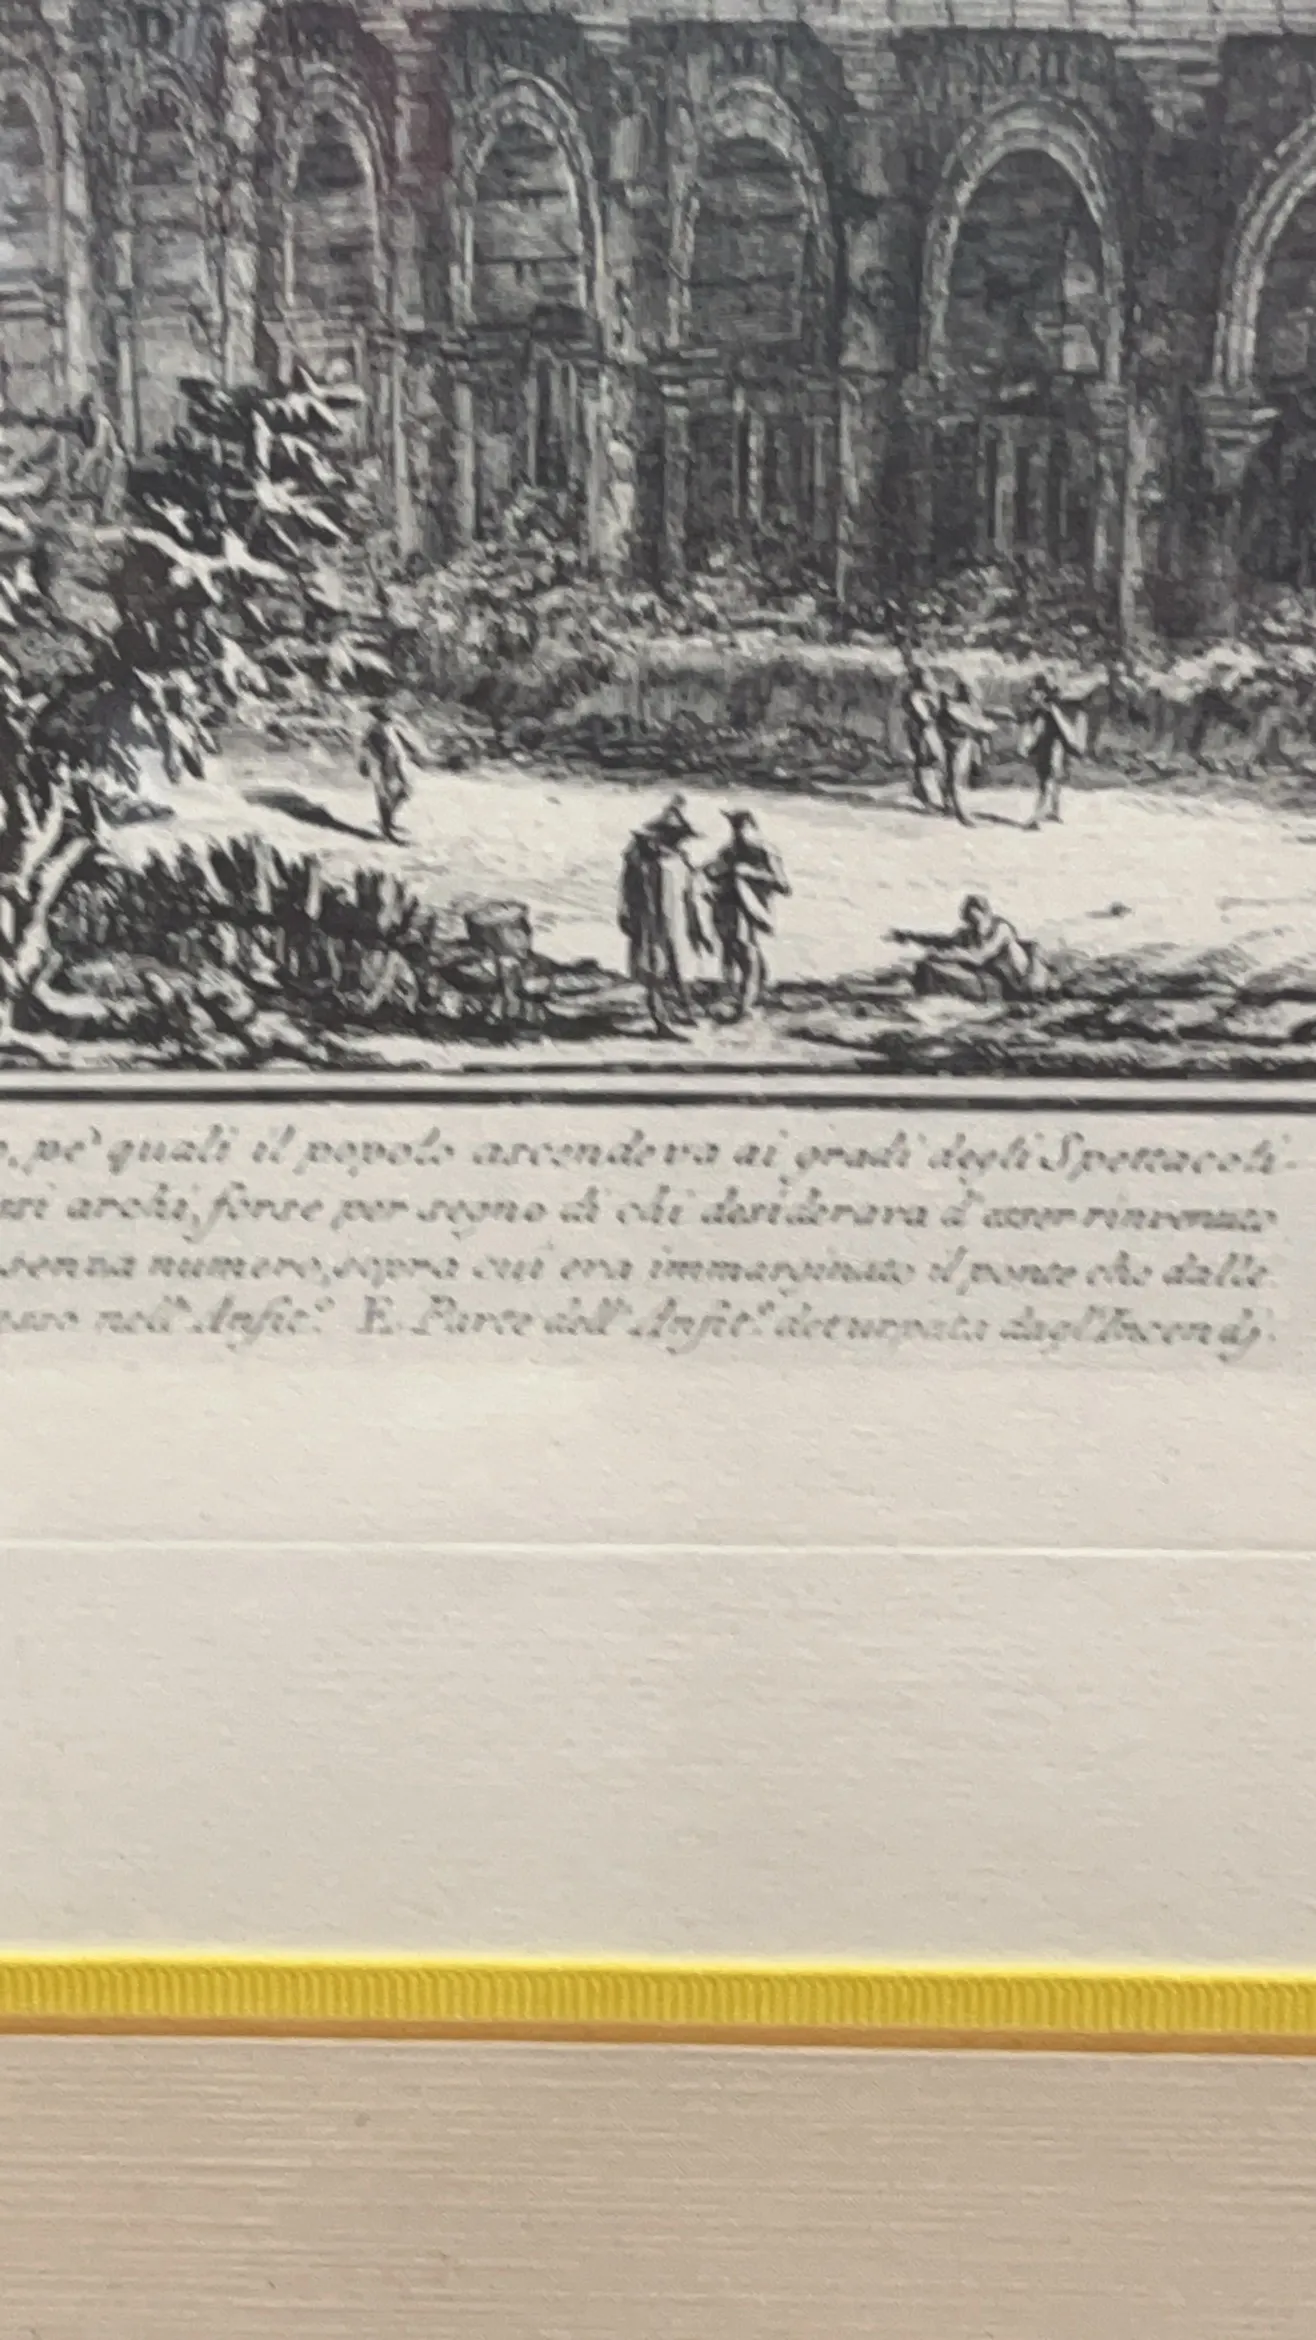 pe' quali il popolo ascendeva ai gradi degli Spettacoli.
archi, forse per segno di chi desiderava d'esser rinvenuto
senza numero, sopra cui era immarginato il ponte che dalle
nell'Anfit.º E. Parte dell'Anfit.º deturpata dagl'Incendj.